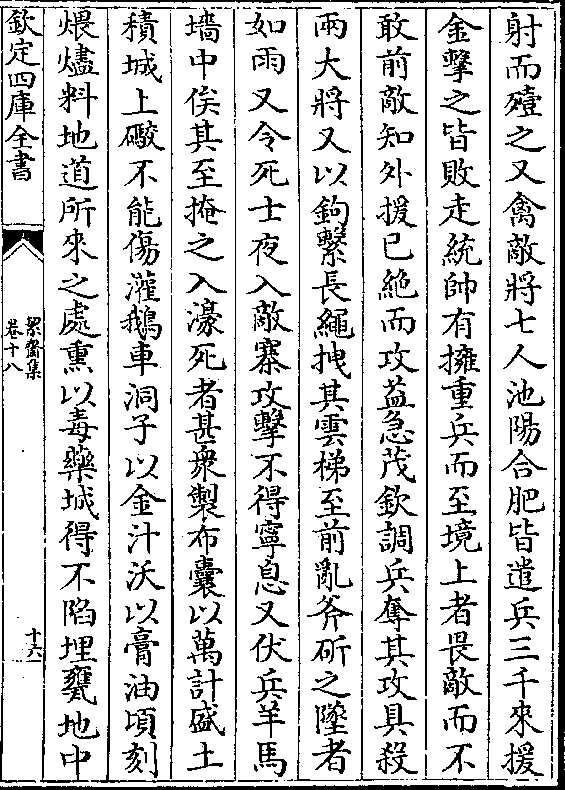 射而殪之又禽敵將七人池陽合肥皆遣兵三千來援
金擊之皆敗走統帥有擁重兵而至境上者畏敵而不
敢前敵知外援已絶而攻益急茂欽調兵奪其攻具殺
兩大將又以鉤繫長繩拽其雲梯至前亂斧斫之墜者
如雨又令死士夜入敵寨攻擊不得寧息又伏兵羊馬
墻中俟其至掩之入濠死者甚衆製布囊以萬計盛土
積城上礮不能傷灌鵝車洞子以金汁沃以膏油頃刻
煨燼料地道所來之處熏以毒藥城得不陷埋甕地中
欽定四庫全書
絜齋集
卷十八
十六